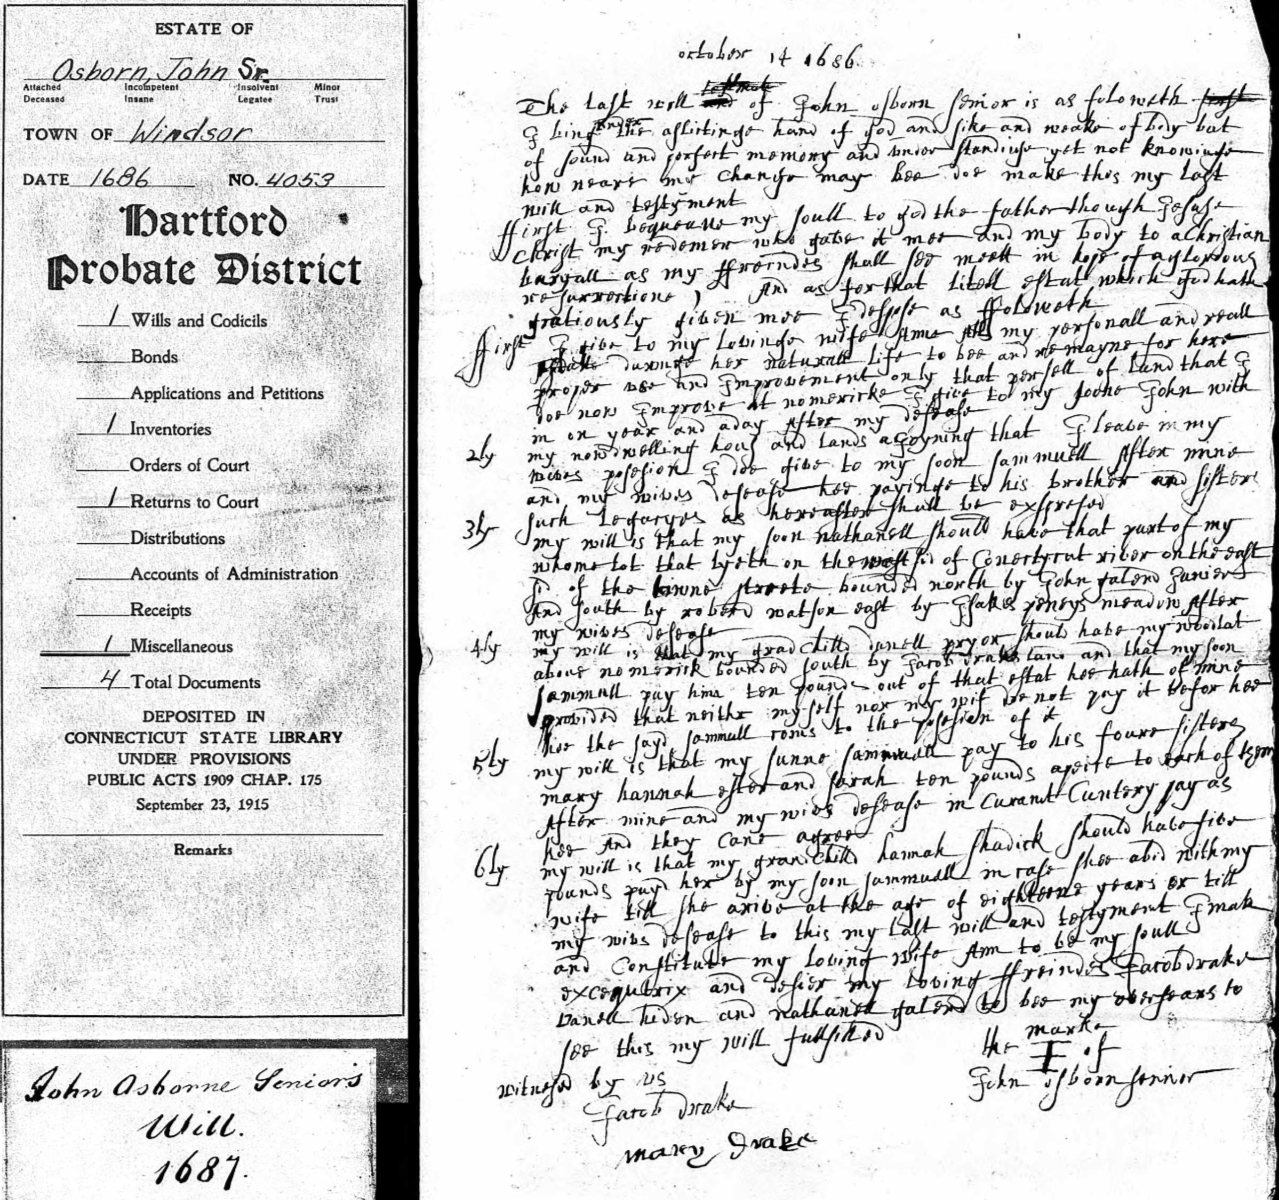 ESTATE OF
Osborn, John Sr.
Attached Incompetent Insolvent Minor
Deceased Insane Legatee Trust
TOWN OF Windsor
DATE 1686 NO. 4053
Hartford
Probate District
1 Wills and Codicils
Bonds
Applications and Petitions
1 Inventories
Orders of Court
1 Returns to Court
Distributions
Accounts of Administration
Receipts
1 Miscellaneous
4 Total Documents
DEPOSITED IN
CONNECTICUT STATE LIBRARY
UNDER PROVISIONS
PUBLIC ACTS 1909 CHAP. 175
September 23, 1915
Remarks
John Osborne Seniors
Will.
1687.
october 14 1686
The last will of John osborn senior is as foloweth
I bing under the aflictinge hand of god and sike and weake of body but
of sound and perfect memory and under standinge yet not knowinge
how neare my change may bee doe make this my last
will and testyment
ffirst I bequeave my soull to god the father though Jesuse
Christ my redemer who gave it mee and my body to a Christian
buryall as my ffreindes shall see meett in hope of a glorious
resurrectione And as for that litell estat which god hath
gratiously given mee I dispose as ffoloweth
ffirst I give to my lovinge wife Anne all my personall and reall
estate duringe her naturall life to bee and remayne for here
proper use and Improvement only that persell of land that I
doe now Improve at nomericke I give to my soone John with
in on year and a day after my desease
2ly my now dwelling hous and lands agoyning that I leave in my
wives posesion I doe give to my soon sammuell After mine
and my wives desease hee payinge to his brother and sisters
such legacyes as hereafter shall be expresed
3ly my will is that my soon nathanell should have that part of my
whome lot that lyeth on the west sid of Conectycut river on the east
sid of the towne streete bounded north by John galerd Junier
And south by roberd watson east by meadow After
my wives desease
4ly my will is that my gradchilld danell pryor should have my woodlat
above nomerick bounded south by Jacob drakes land and that my soon
sammull pay him ten pounds out of that estat hee hath of mine
provided that neithr my self nor my wif doe not pay it befor hee
the sayd sammull coms to the posesion of it
5ly my will is that my sunne sammuell pay to his foure sisters
mary hannah ester and sarah ten pounds apeice to each of them
After mine and my wivs desease in Curant Cuntery pay as
hee And they Cane agree
6ly my will is that my granchilld hannah shadick should have five
pounds payd her by my soon sammuell in case shee abid with my
wife till she arive at the age of eighteene years or till
my wivs desease to this my last will and testyment I mak
and Constitute my loving wife Ann to be my soull
excequtrix and desier my loving ffreindes Jacob drake
danell and nathanell galerd to bee my oversears to
see this my will fullfilled
the marke
I of
John osborn sennor
witnesed by us
Jacob drake
mary Drake